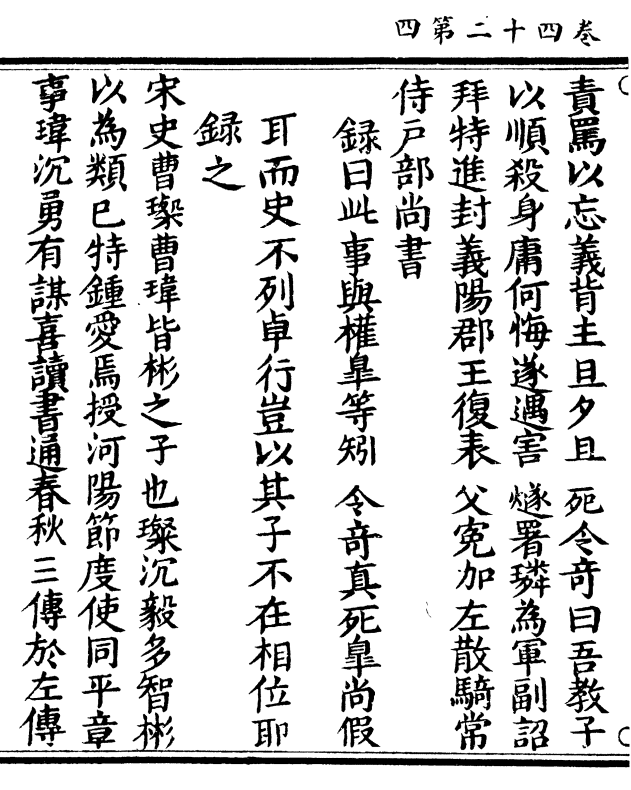 卷四十二第四
責罵以忘義背主旦夕且死令奇曰吾教子
以順殺身庸何悔遂遇害燧署璘為軍副詔
拜特進封義陽郡王復表父寃加左散騎常
侍戸部尚書
録曰此事與權臯等矧令奇真死臯尚假
耳而史不列卓行豈以其子不在相位耶
録之
宋史曹璨曹瑋皆彬之子也璨沉毅多智彬
以為類已特鍾愛焉授河陽節度使同平章
事瑋沉勇有謀喜讀書通春秋三傳於左傳